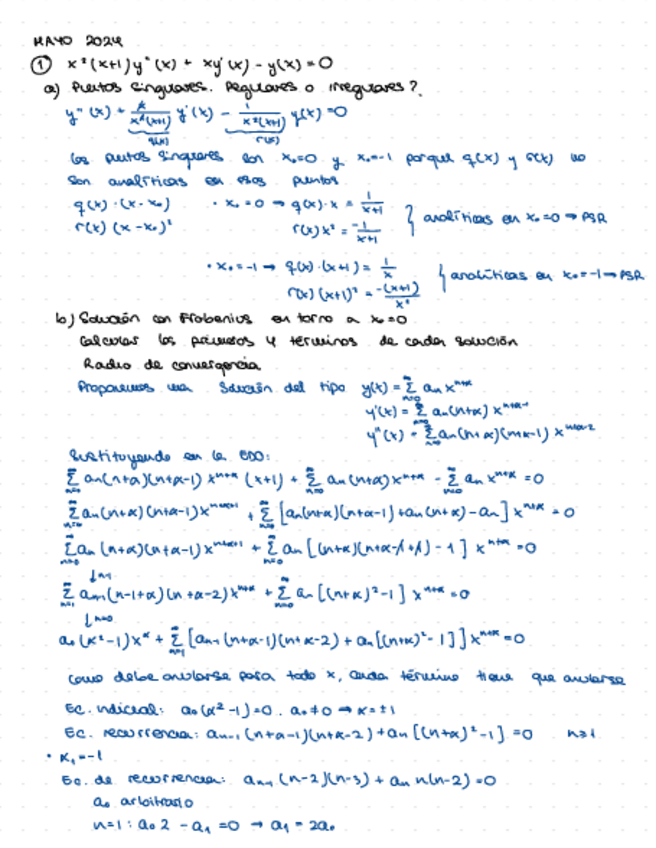 MAYO 2024
① x²(x+1)y''(x) + xy'(x) - y(x) = 0
a) Puntos singulares. Regulares o irregulares?
y''(x) + x/(x²(x+1)) y'(x) - 1/(x²(x+1)) y(x) = 0
q(x) r(x)
Los puntos singulares son x₀=0 y x₀=-1 porque q(x) y r(x) no
son analíticas en esos puntos
q(x)·(x-x₀) · x₀=0 → q(x)·x = 1/(x+1)
r(x)(x-x₀)² r(x)x² = -1/(x+1) } analíticas en x₀=0 → PSR
· x₀=-1 → q(x)·(x+1) = 1/x
r(x)(x+1)² = -(x+1)/x² } analíticas en x₀=-1 → PSR
b) Solución con Frobenius en torno a x₀=0
Calcular los primeros 4 términos de cada solución
Radio de convergencia
Proponemos una solución del tipo y(x) = ∑_{n=0}^∞ aₙ x^{n+α}
y'(x) = ∑_{n=0}^∞ aₙ(n+α) x^{n+α-1}
y''(x) = ∑_{n=0}^∞ aₙ(n+α)(n+α-1) x^{n+α-2}
Sustituyendo en la EDO:
∑_{n=0}^∞ aₙ(n+α)(n+α-1) x^{n+α} (x+1) + ∑_{n=0}^∞ aₙ(n+α) x^{n+α} - ∑_{n=0}^∞ aₙ x^{n+α} = 0
∑_{n=0}^∞ aₙ(n+α)(n+α-1) x^{n+α+1} + ∑_{n=0}^∞ [aₙ(n+α)(n+α-1) + aₙ(n+α) - aₙ] x^{n+α} = 0
∑_{n=0}^∞ aₙ(n+α)(n+α-1) x^{n+α+1} + ∑_{n=0}^∞ aₙ[(n+α)(n+α-1+1) - 1] x^{n+α} = 0
↓n-1
∑_{n=1}^∞ aₙ₋₁(n-1+α)(n+α-2) x^{n+α} + ∑_{n=0}^∞ aₙ[(n+α)² - 1] x^{n+α} = 0
↓n=0
a₀(α²-1)x^α + ∑_{n=1}^∞ [aₙ₋₁(n+α-1)(n+α-2) + aₙ[(n+α)² - 1]] x^{n+α} = 0
Como debe anularse para todo x, cada término tiene que anularse
Ec. indicial: a₀(α²-1)=0. a₀≠0 → α=±1
Ec. recurrencia: aₙ₋₁(n+α-1)(n+α-2) + aₙ[(n+α)² - 1] = 0 n≥1
· α₁=-1
Ec. de recurrencia: aₙ₋₁(n-2)(n-3) + aₙ n(n-2) = 0
a₀ arbitrario
n=1: a₀2 - a₁ = 0 → a₁ = 2a₀